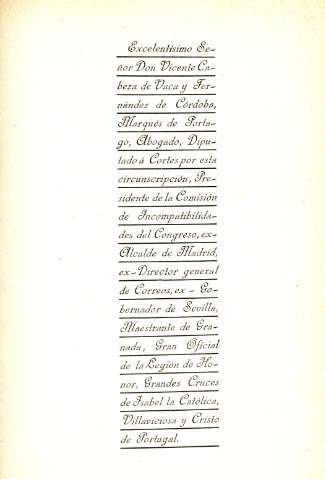 Excelentísimo Se-
ñor Don Vicente Ca-
beza de Vaca y Fer-
nández de Córdoba,
Marqués de Porta-
go, Abogado, Dipu-
tado á Cortes por esta
circunscripción, Pre-
sidente de la Comisión
de Incompatibilida-
des del Congreso, ex-
Alcalde de Madrid,
ex-Director general
de Correos, ex-Go-
bernador de Sevilla,
Maestrante de Gra-
nada, Gran Oficial
de la Legión de Ho-
nor, Grandes Cruces
de Isabel la Católica,
Villaviciosa y Cristo
de Portugal.